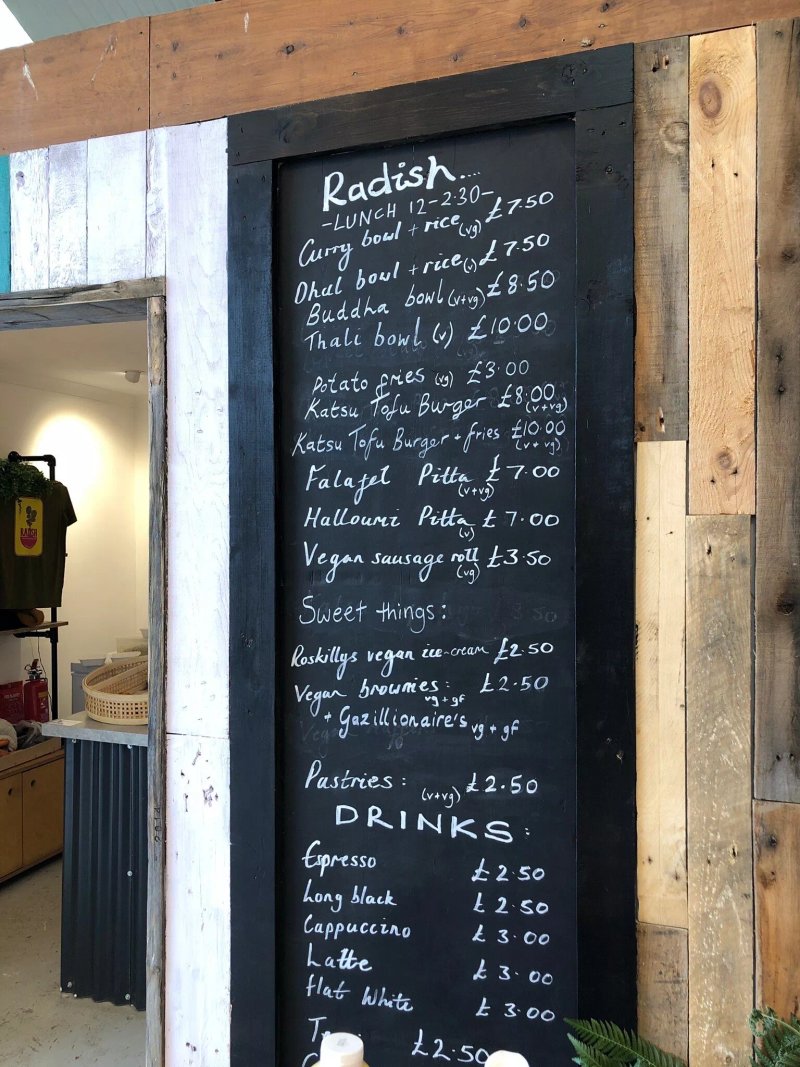 Radish....
-LUNCH 12-2:30-
Curry bowl + rice (vg) £7.50
Dhal bowl + rice (v) £7.50
Buddha bowl (v+vg) £8.50
Thali bowl (v) £10.00
Potato fries (vg) £3.00
Katsu Tofu Burger £8.00 (v+vg)
Katsu Tofu Burger + fries £10.00 (v+vg)
Falafel Pitta £7.00 (v+vg)
Halloumi Pitta £7.00 (v)
Vegan sausage roll £3.50 (vg)
Sweet things:
Roskillys vegan ice-cream £2.50
Vegan brownies: £2.50 vg+gf
+ Gazillionaire's vg+gf
Pastries: (v+vg) £2.50
DRINKS:
Espresso £2.50
Long black £2.50
Cappuccino £3.00
Latte £3.00
flat White £3.00
£2.50
RADISH